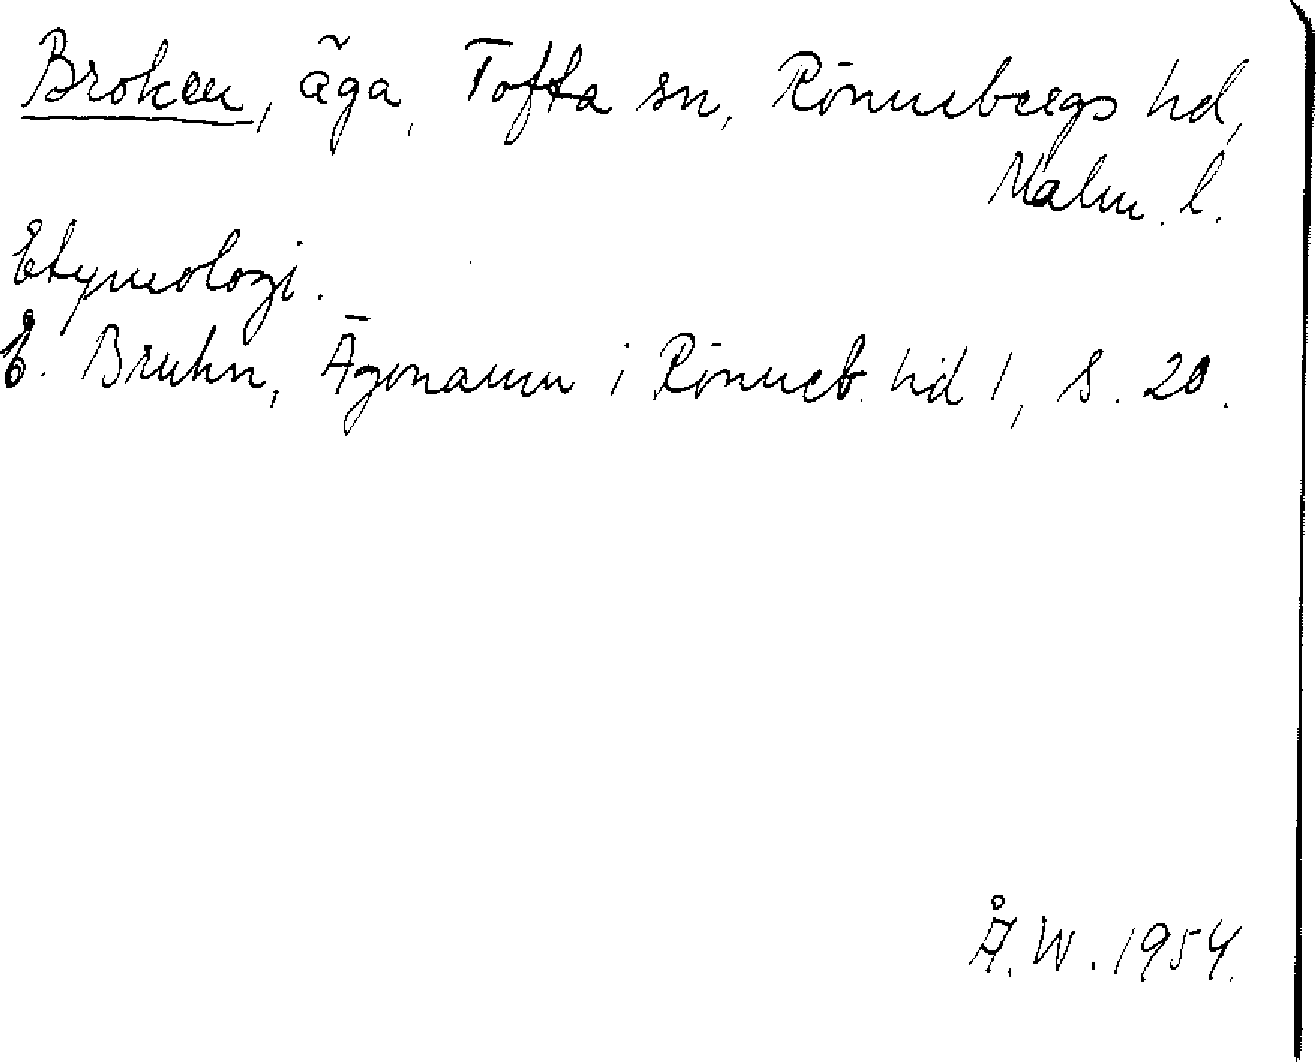 Broken, äga, Tofta sn, Rönnebergs hd,
Malm. l.
Etymologi.
E. Bruhn, Ägonamn i Rönneb. hd 1, s. 20.
Å. W. 1954.